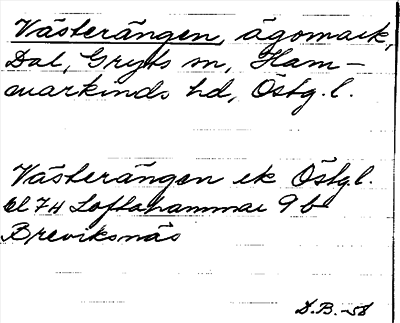 Västerängen, ägomark,
Dal, Gryts sn, Ham-
markinds hd, Östg. l.
Västerängen ek Östg l.
bl 74 Loftahammar 9 b
Breviksnäs
D.B. -58